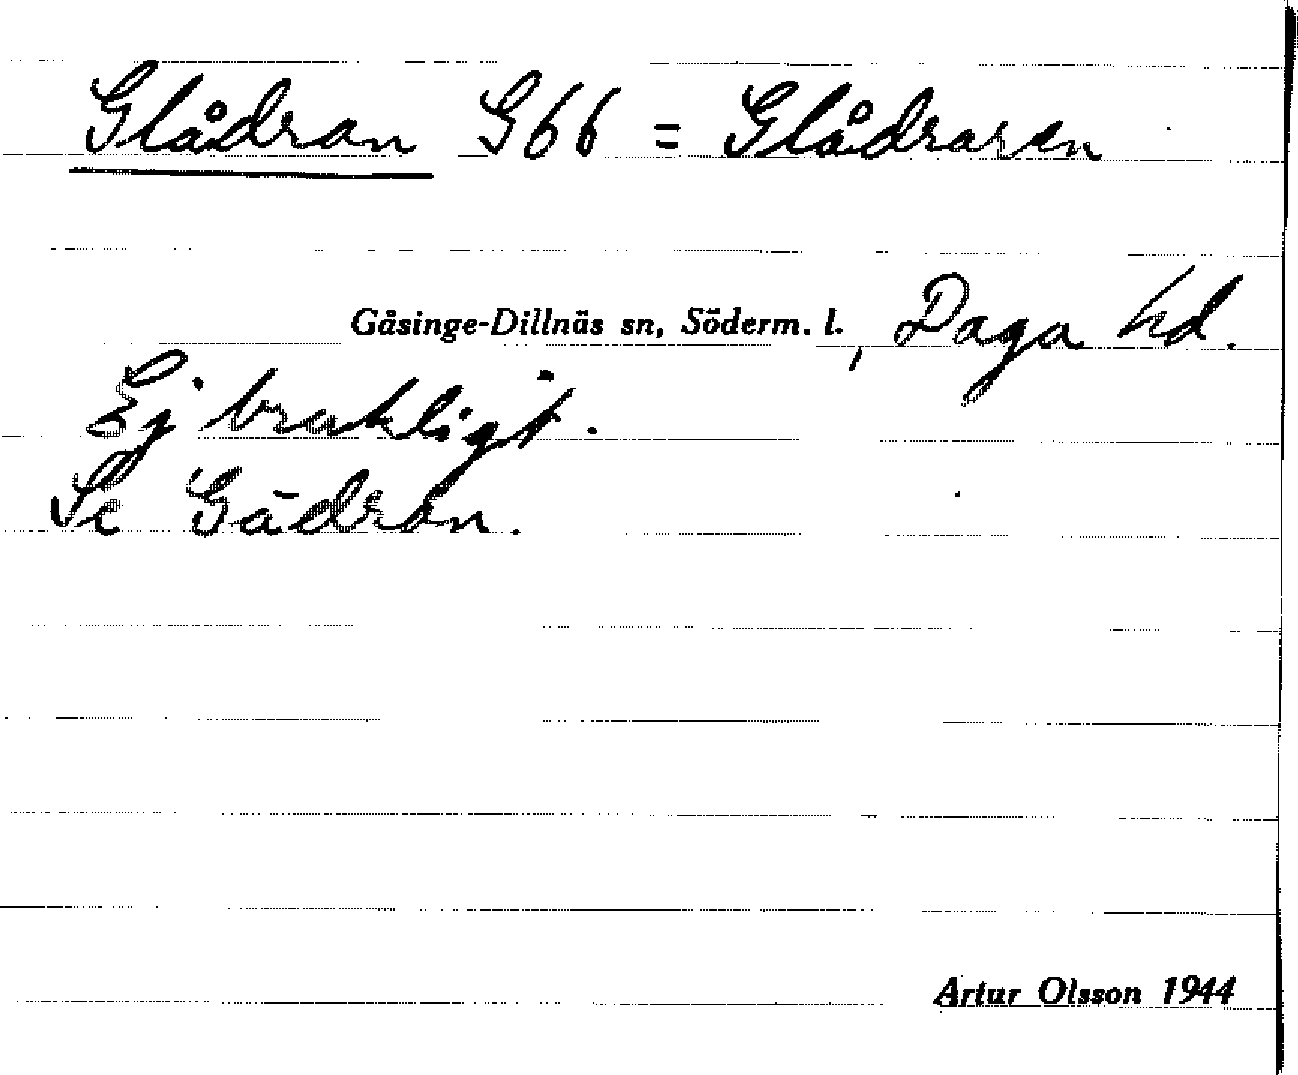 Glådran G66 = Glådraren
Gåsinge-Dillnäs sn, Söderm. l., Daga hd.
Ej brukligt.
Se Gädran.
Artur Olsson 1944